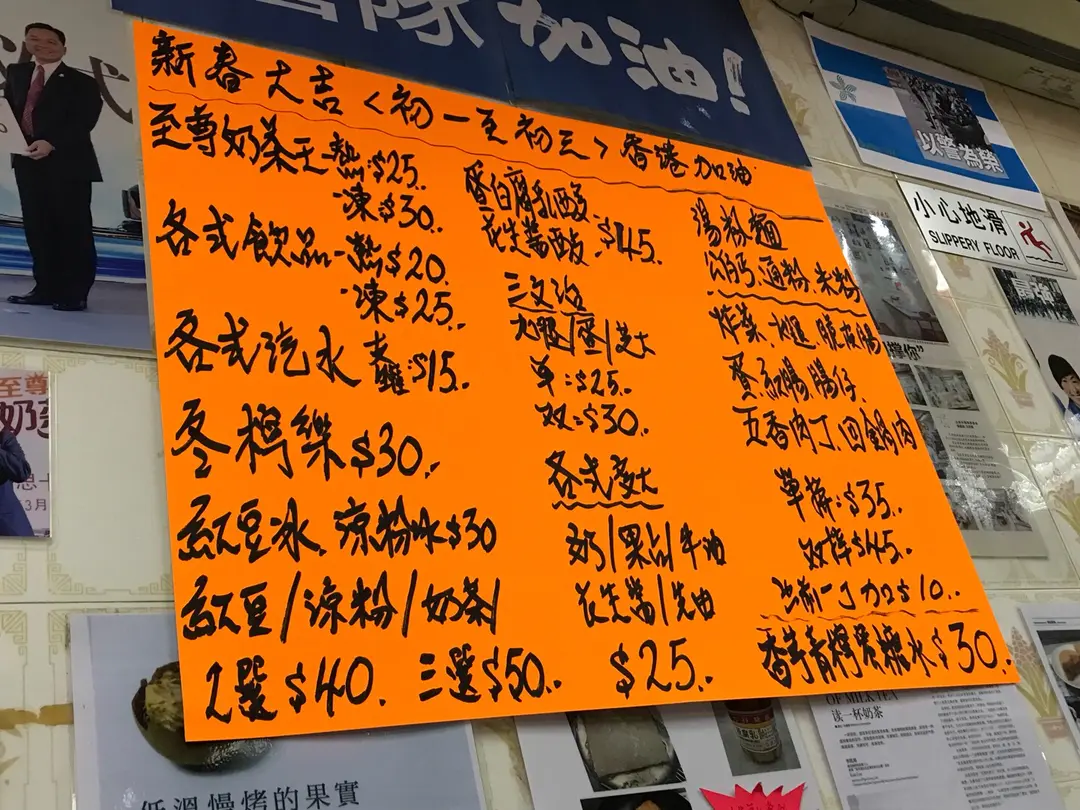 隊加油!
式
新春大吉<初一至初三>香港加油
至尊奶茶王 熱:$25.
凍$30.
各式飲品-熱$20.
凍$25.
各式汽水 $15.
冬檸樂$30.
紅豆冰.凉粉冰$30
紅豆/涼粉/奶茶
2選$40. 三選$50.
蛋白腐乳西多
花生醬西多 $45.
三文治
火腿/蛋/芝士
單:$25.
双:$30.
各式多士
奶/果占/牛油
花生醬/
$25.
湯粉麵
公仔丐.通粉.米粉
炸菜.火腿.脆皮腸
蛋.紅腸.腸仔
五香肉丁.回鍋肉
單拼:$35.
双拼$45.
加$10.
香茅青檸蜜糖水$30.
以警為榮
小心地滑
SLIPPERY FLOOR
撐你"
至尊
奶茶
3月
低溫慢烤的果實
OF MILK TEA
读一杯奶茶